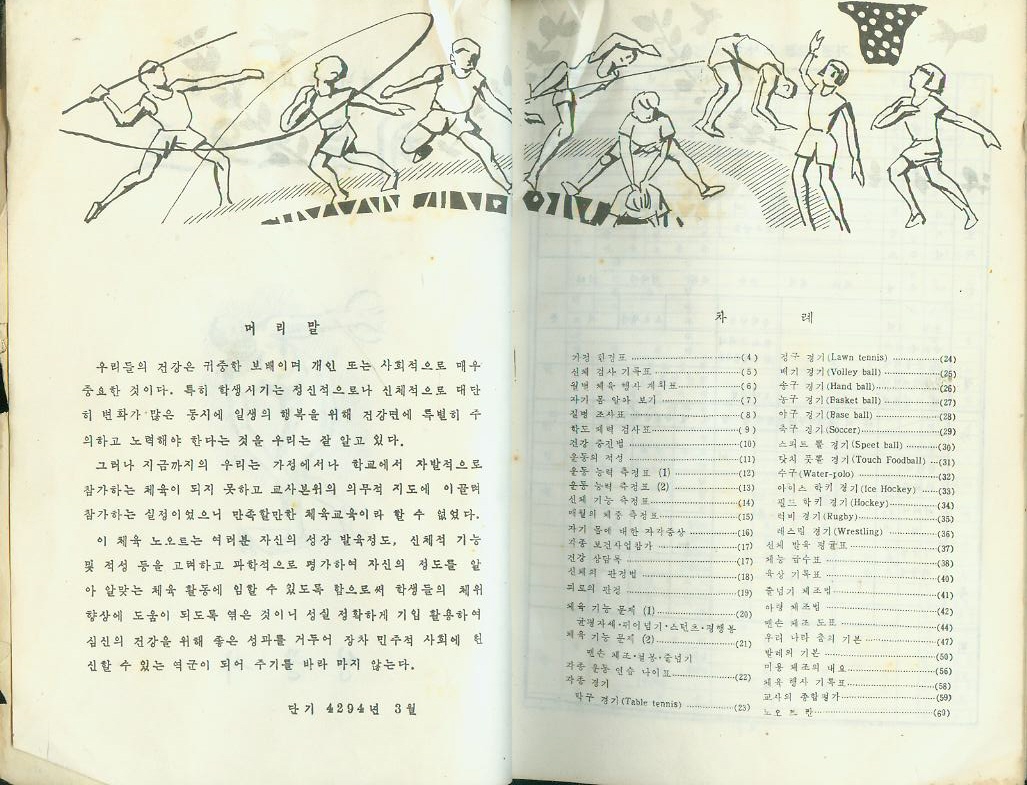 머 리 말
우리들의 건강은 귀중한 보배이며 개인 또는 사회적으로 매우
중요한 것이다. 특히 학생시기는 정신적으로나 신체적으로 대단
히 변화가 많은 동시에 일생의 행복을 위해 건강면에 특별히 주
의하고 노력해야 한다는 것을 우리는 잘 알고 있다.
그러나 지금까지의 우리는 가정에서나 학교에서 자발적으로
참가하는 체육이 되지 못하고 교사본위의 의무적 지도에 이끌려
참가하는 실정이었으니 만족할만한 체육교육이라 할 수 없었다.
이 체육 노오트는 여러분 자신의 성장 발육정도, 신체적 기능
및 적성 등을 고려하고 과학적으로 평가하여 자신의 정도를 알
아 알맞는 체육 활동에 임할 수 있도록 함으로써 학생들의 체위
향상에 도움이 되도록 엮은 것이니 성실 정확하게 기입 활용하여
심신의 건강을 위해 좋은 성과를 거두어 장차 민주적 사회에 헌
신할 수 있는 역군이 되어 주기를 바라 마지 않는다.
단기 4294년 3월
차 례
가정 환경표 (4)
신체 검사 기록표 (5)
월별 체육 행사 계획표 (6)
자기 몸 알아 보기 (7)
질병 조사표 (8)
학도 체력 검사표 (9)
건강 증진법 (10)
운동의 적성 (11)
운동 능력 측정표 (1) (12)
운동 능력 측정표 (2) (13)
신체 기능 측정표 (14)
매월의 체중 측정표 (15)
자기 몸에 대한 자각증상 (16)
각종 보건사업참가 (17)
건강 상담록 (17)
신체의 판정법 (18)
피로의 판정 (19)
체육 기능 문제 (1) (20)
균형자세·뛰어넘기·스턴츠·평행봉
체육 기능 문제 (2) (21)
맨손 체조·철봉·줄넘기
각종 운동 연습 나이표 (22)
각종 경기
탁구 경기 (Table tennis) (23)
정구 경기 (Lawn tennis) (24)
배기 경기 (Volley ball) (25)
송구 경기 (Hand ball) (26)
농구 경기 (Basket ball) (27)
야구 경기 (Base ball) (28)
축구 경기 (Soccer) (29)
스피드 뽈 경기 (Speet ball) (30)
닷치 풋뽈 경기 (Touch Foodball) (31)
수구 (Water-polo) (32)
아이스 학키 경기 (Ice Hockey) (33)
필드 학키 경기 (Hockey) (34)
럭비 경기 (Rugby) (35)
레스링 경기 (Wrestling) (36)
신체 발육 평균표 (37)
체능 급수표 (38)
육상 기록표 (40)
줄넘기 체조법 (41)
아령 체조법 (42)
맨손 체조 도표 (44)
우리 나라 춤의 기본 (47)
발레의 기본 (50)
미용 체조의 내요 (56)
체육 행사 기록표 (58)
교사의 종합평가 (59)
노오트 란 (60)